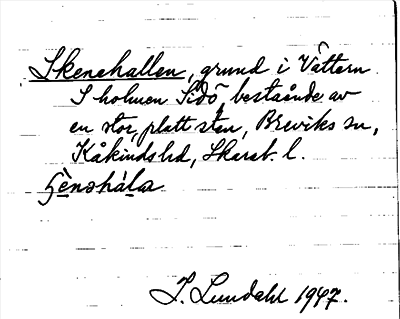 Skenehallen, grund i Vättern
S holmen Sidö, bestående av
en stor, platt sten, Breviks sn,
Kåkindshd, Skarab. l.
I. Lundahl 1947.